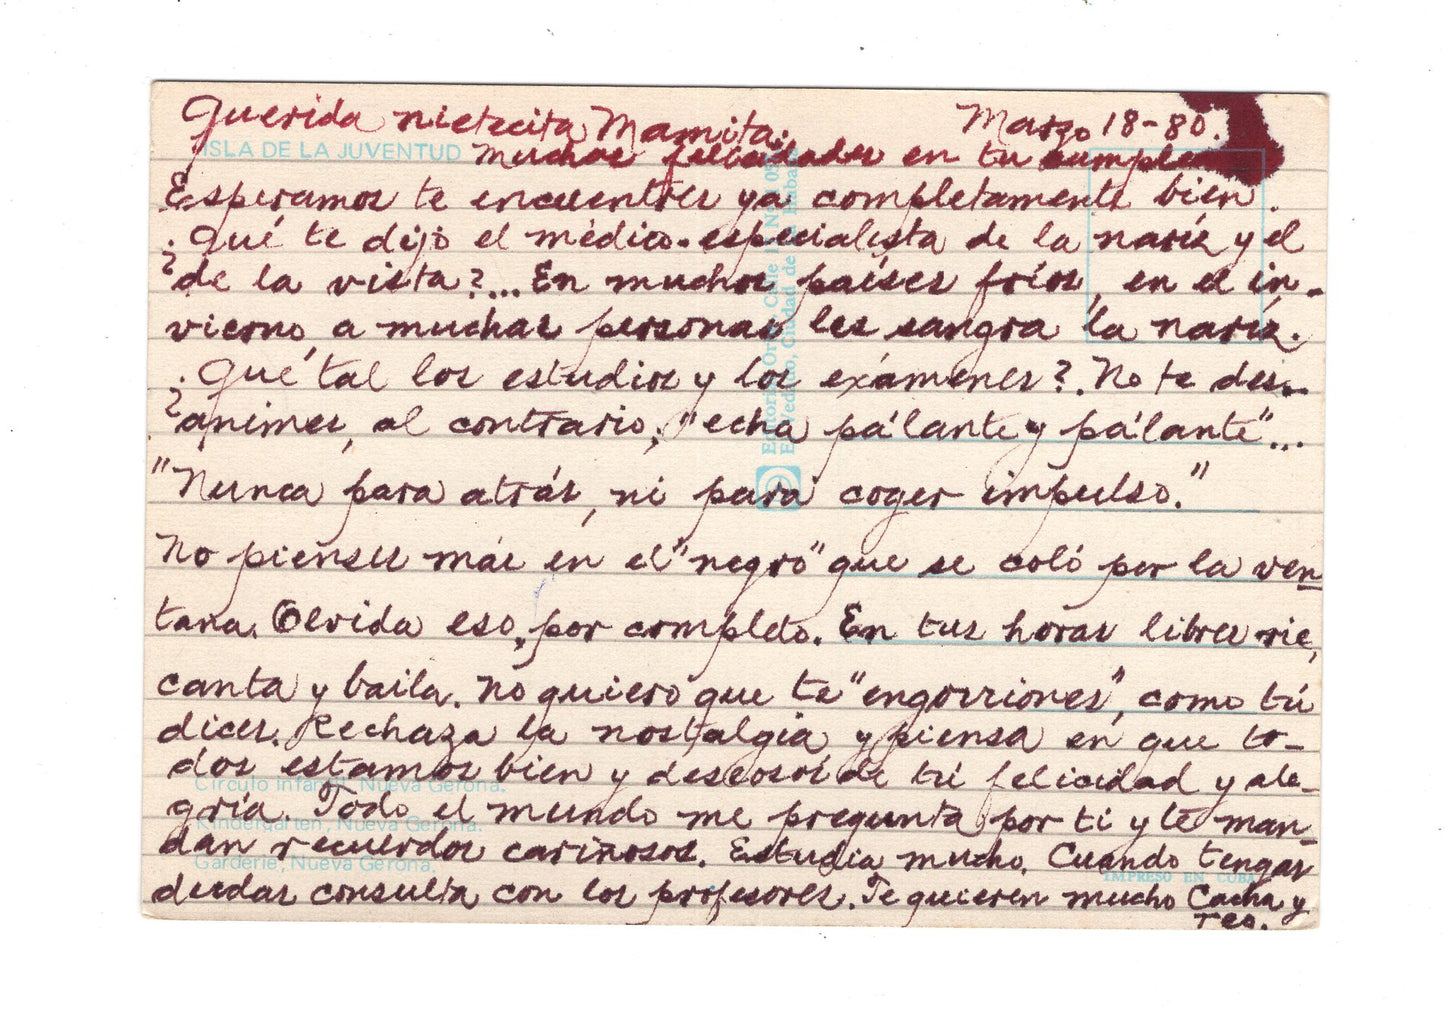 Querida nietecita Mamita: Marzo 18-80.
ISLA DE LA JUVENTUD
Muchas felicidades en tu cumple
Esperamos te encuentres ya completamente bien.
¿Qué te dijo el médico especialista de la nariz y el
de la vista?... En muchos países fríos, en el in-
vierno, a muchas personas les sangra la nariz.
¿Qué tal los estudios y los exámenes?. No te des-
ánimes, al contrario, "echa pá'lante y pá'lante"...
"Nunca para atrás, ni para coger impulso."
No pienses más en el "negro" que se coló por la ven
tana. Olvida eso, por completo. En tus horas libres rie,
canta y baila. No quiero que te "engorriones", como tú
dices. Rechaza la nostalgia y piensa en que to-
dos estamos bien y deseosos de tú felicidad y ale-
gría. Todo el mundo me pregunta por ti y te man-
dan recuerdos cariñosos. Estudia mucho. Cuando tengas
dudas consulta con los profesores. Te quieren mucho Cacha y
Teo.
Círculo Infantil, Nueva Gerona.
Kindergarten, Nueva Gerona.
Garderie, Nueva Gerona.
IMPRESO EN CUBA